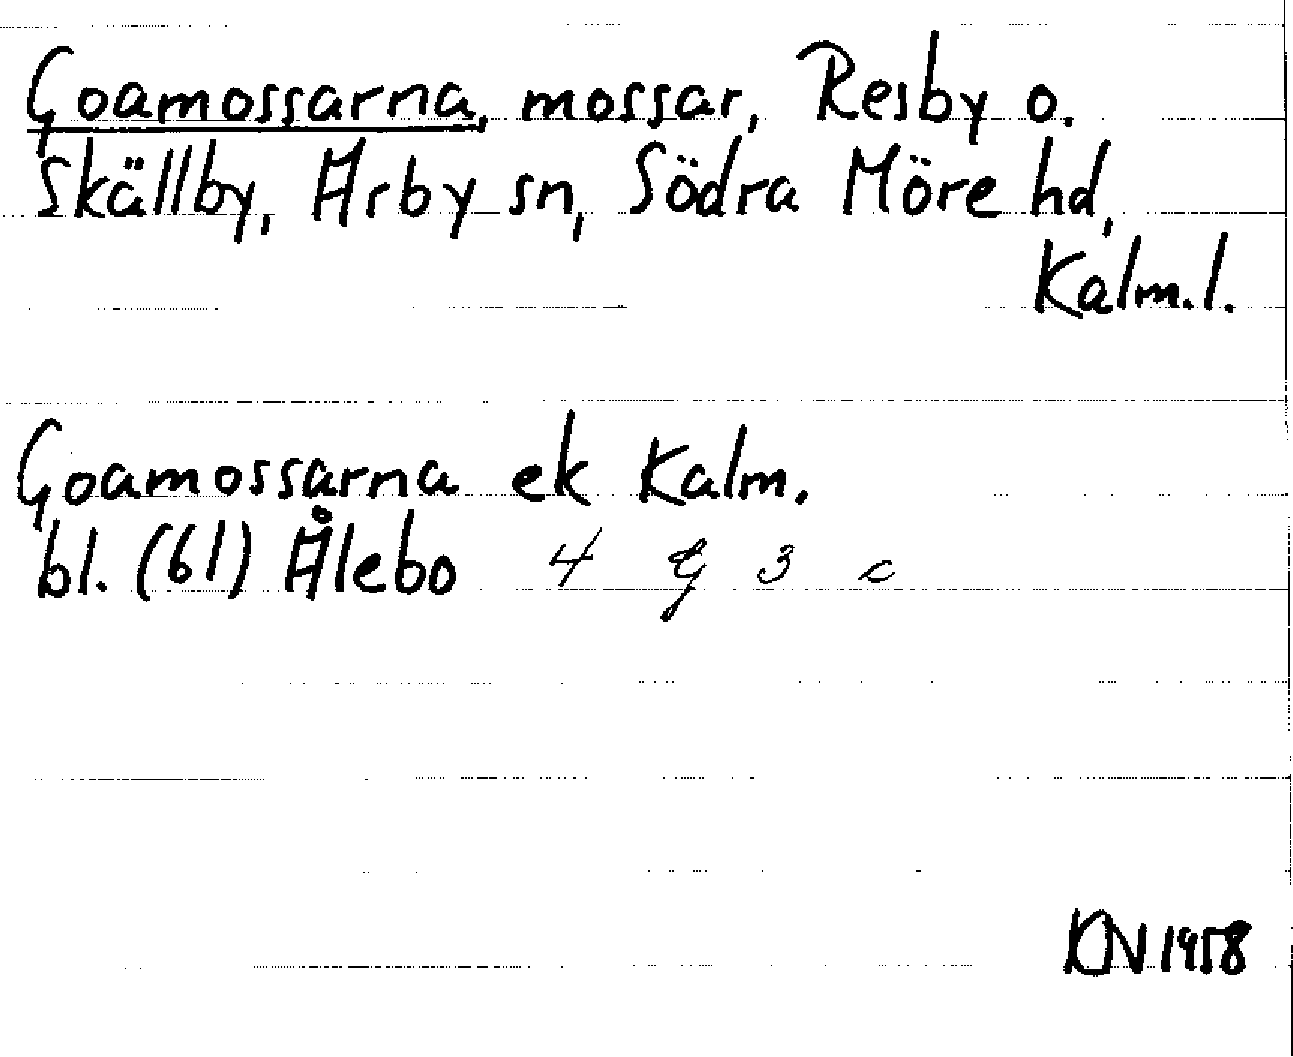 Goamossarna, mossar, Resby o.
Skällby, Arby sn, Södra Möre hd,
Kalm.l.
Goamossarna ek Kalm.
bl. (61) Ålebo 4 g 3 c
KN 1958